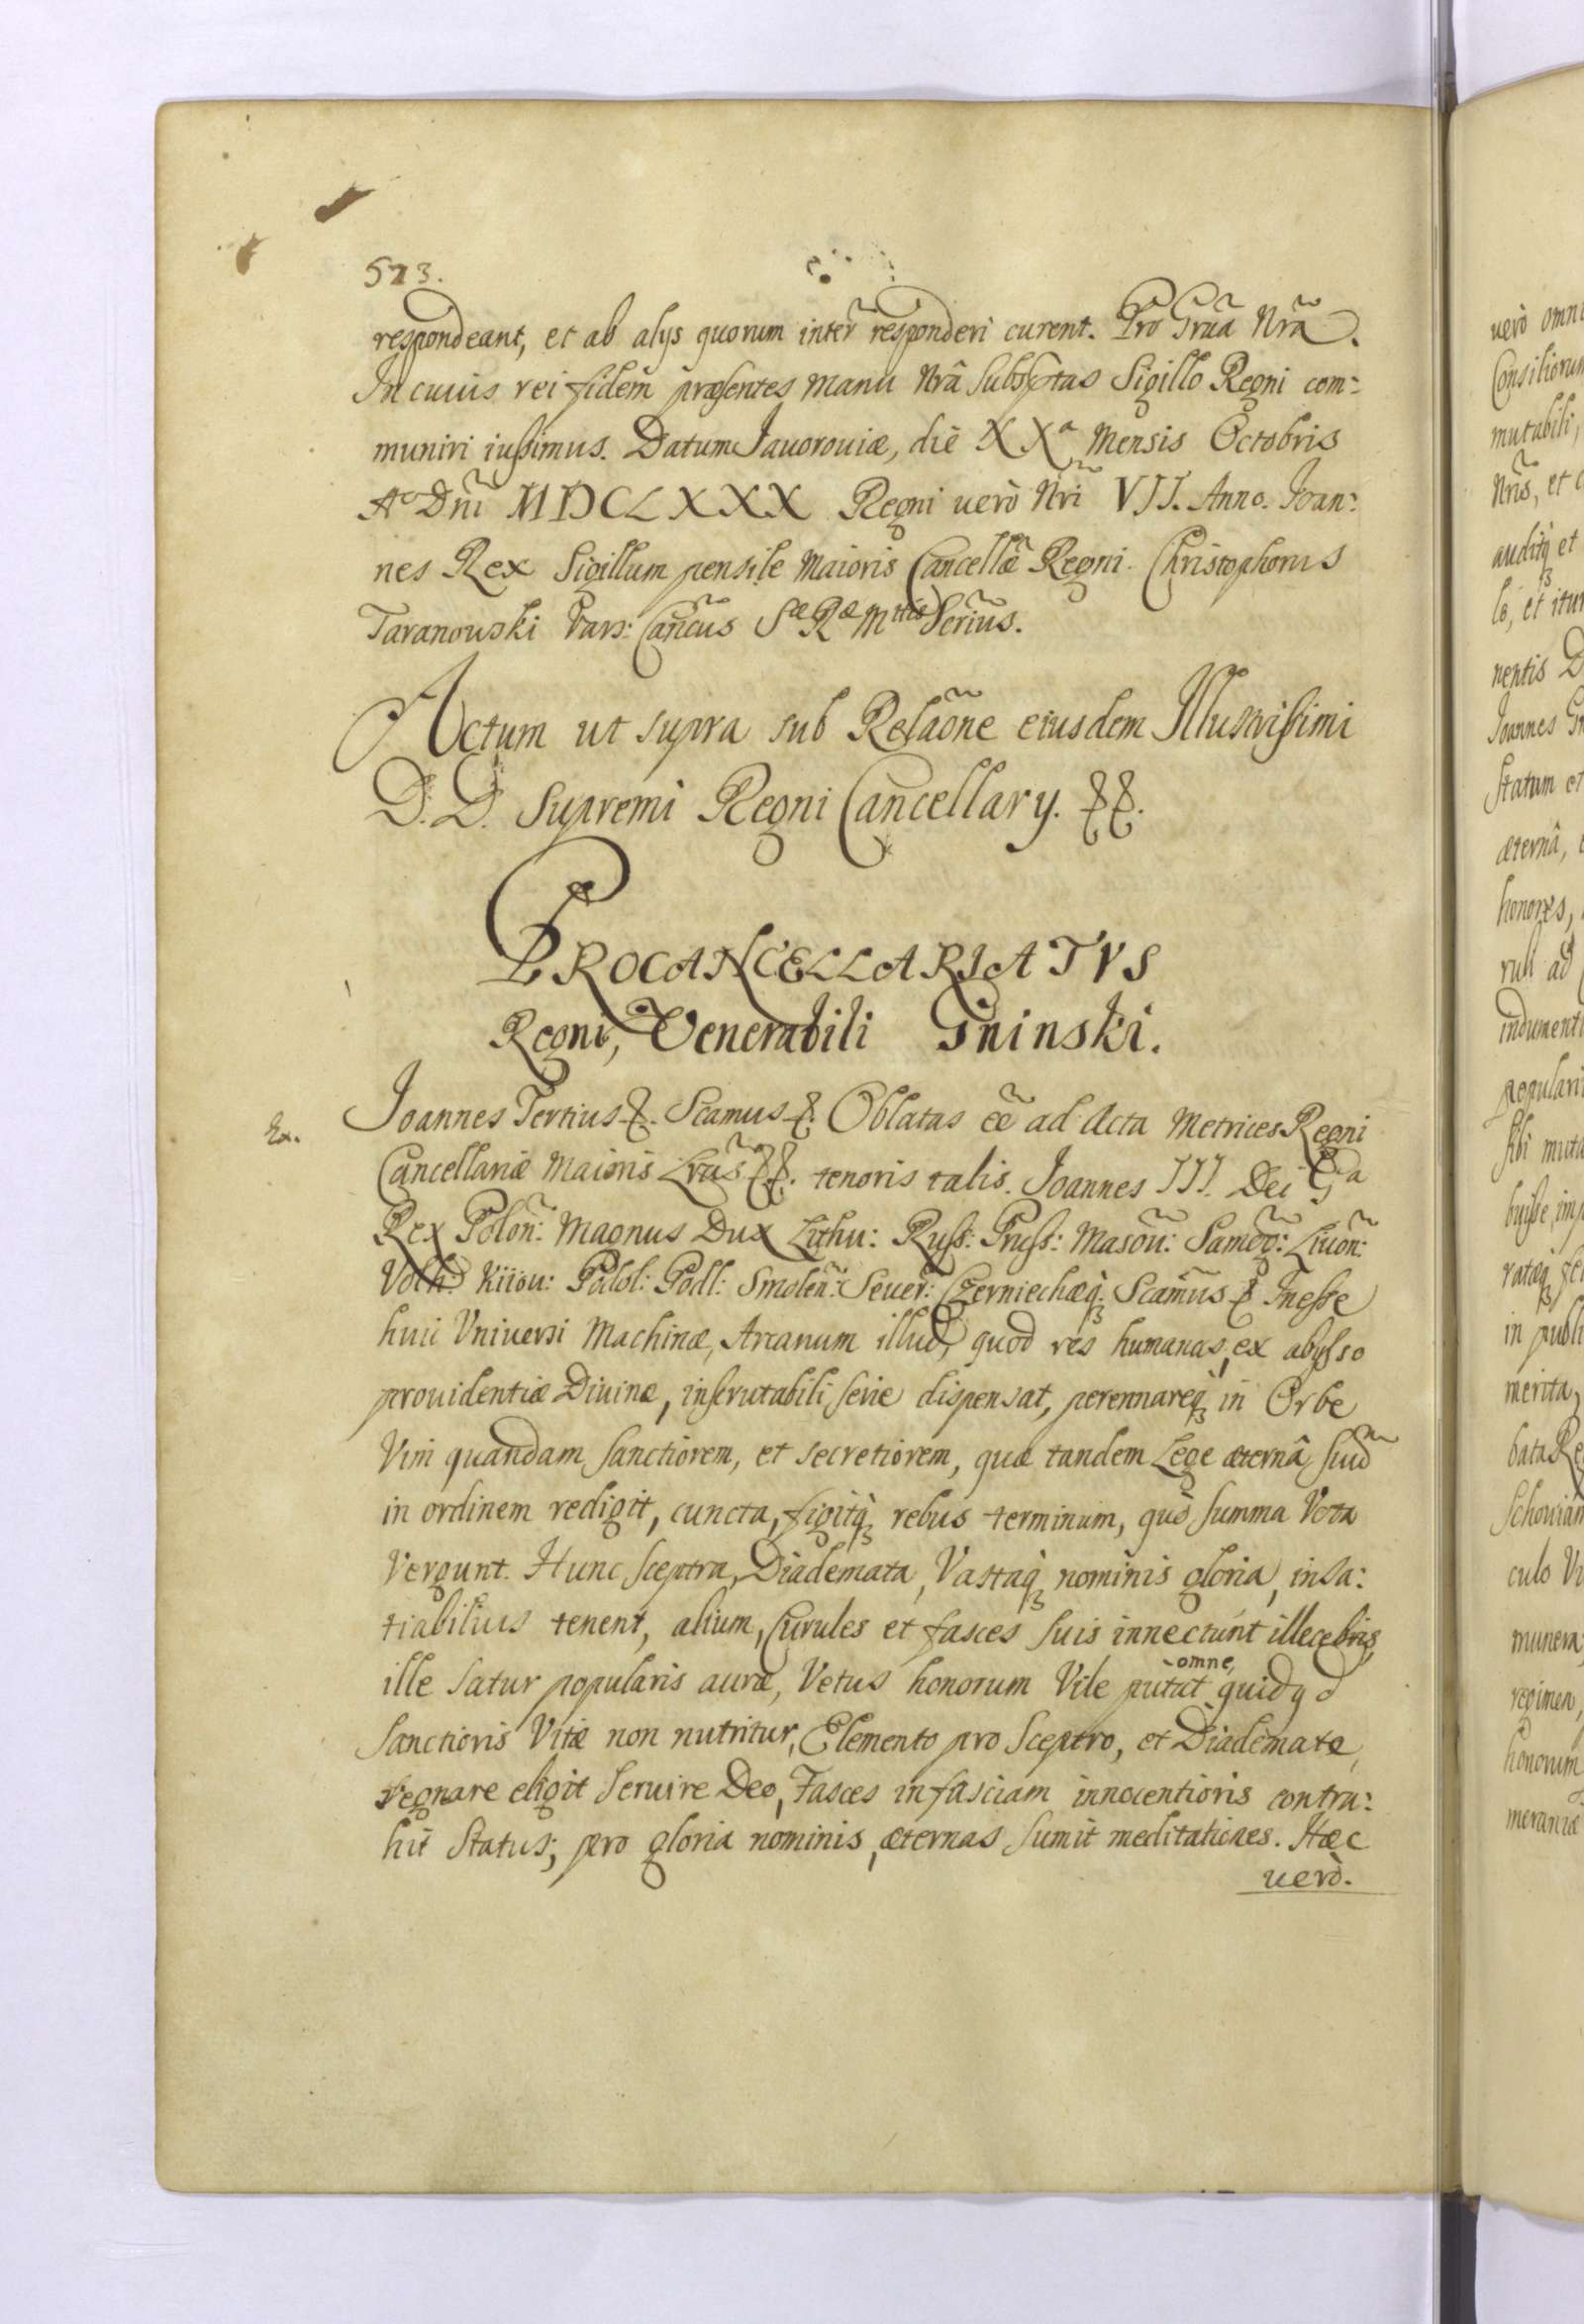 573.
respondeant, et ab alys quorum inter̃ responderi curent. Pro Grã̃ Nrã.
In cuius rei fidem præsentes manu Nrâ Subsptas Sigillo Regni com:
muniri iussimus. Datum Jauorouiæ, die XXª Mensis Octobris
Aº Dñi MDCLXXX Regni uerò Nrĩ VII. Anno. Ioan:
nes Rex Sigillum pensile Maioris Cancellæ̃ Regni. Christophorus
Taranouski Vars: Cañcus Sæ Ræ Mttis Secrius.
Actum ut supra sub Relaõne eiusdem Illustrissimi
D. D. Supremi Regni Cancellary.
PROCANCELLARIATVS
Regni, Venerabili Gninski.
Ex.
Joannes Tertius &. Scamus &. Oblatas eẽ ad Acta Metrices Regni
Cancellariæ Maioris Lrãs &&. tenoris talis. Joannes III. Dei Gª
Rex Polon̄: Magnus Dux Lithu: Russ: Pruss: Masou: Samog: Liuon:
Volh: Kiiou: Podol: Podl: Smolen̄: Seuer: Czerniechæq̀ Scamus & Inesse
huic Vniuersi Machinæ, Arcanum illud, quod res humanas, ex abysso
prouidentiæ Diuinæ, inscrutabili serie dispensat, perennareq̀ in Orbe
Vim quandam sanctiorem, et secretiorem, quæ tandem Lege æternâ, suũ
in ordinem redigit, cuncta, figitq̀ rebus terminum, quò summa Vota
Vergunt. Hunc Sceptra, Diademata, Vastaq̀ nominis gloria, insa:
tiabilius tenent, alium, Curules et fasces suis innectunt illecebris,
ille satur popularis auræ, Vetus honorum Vile putat omne, quidqd
Sanctioris Vitæ non nutritur, Elemento pro Sceptro, et Diademate,
regnare eligit Seruire Deo, Fasces in fasciam innocentioris contra:
hit Status; pro gloria nominis, æternas sumit meditationes. Hæc
uerò.